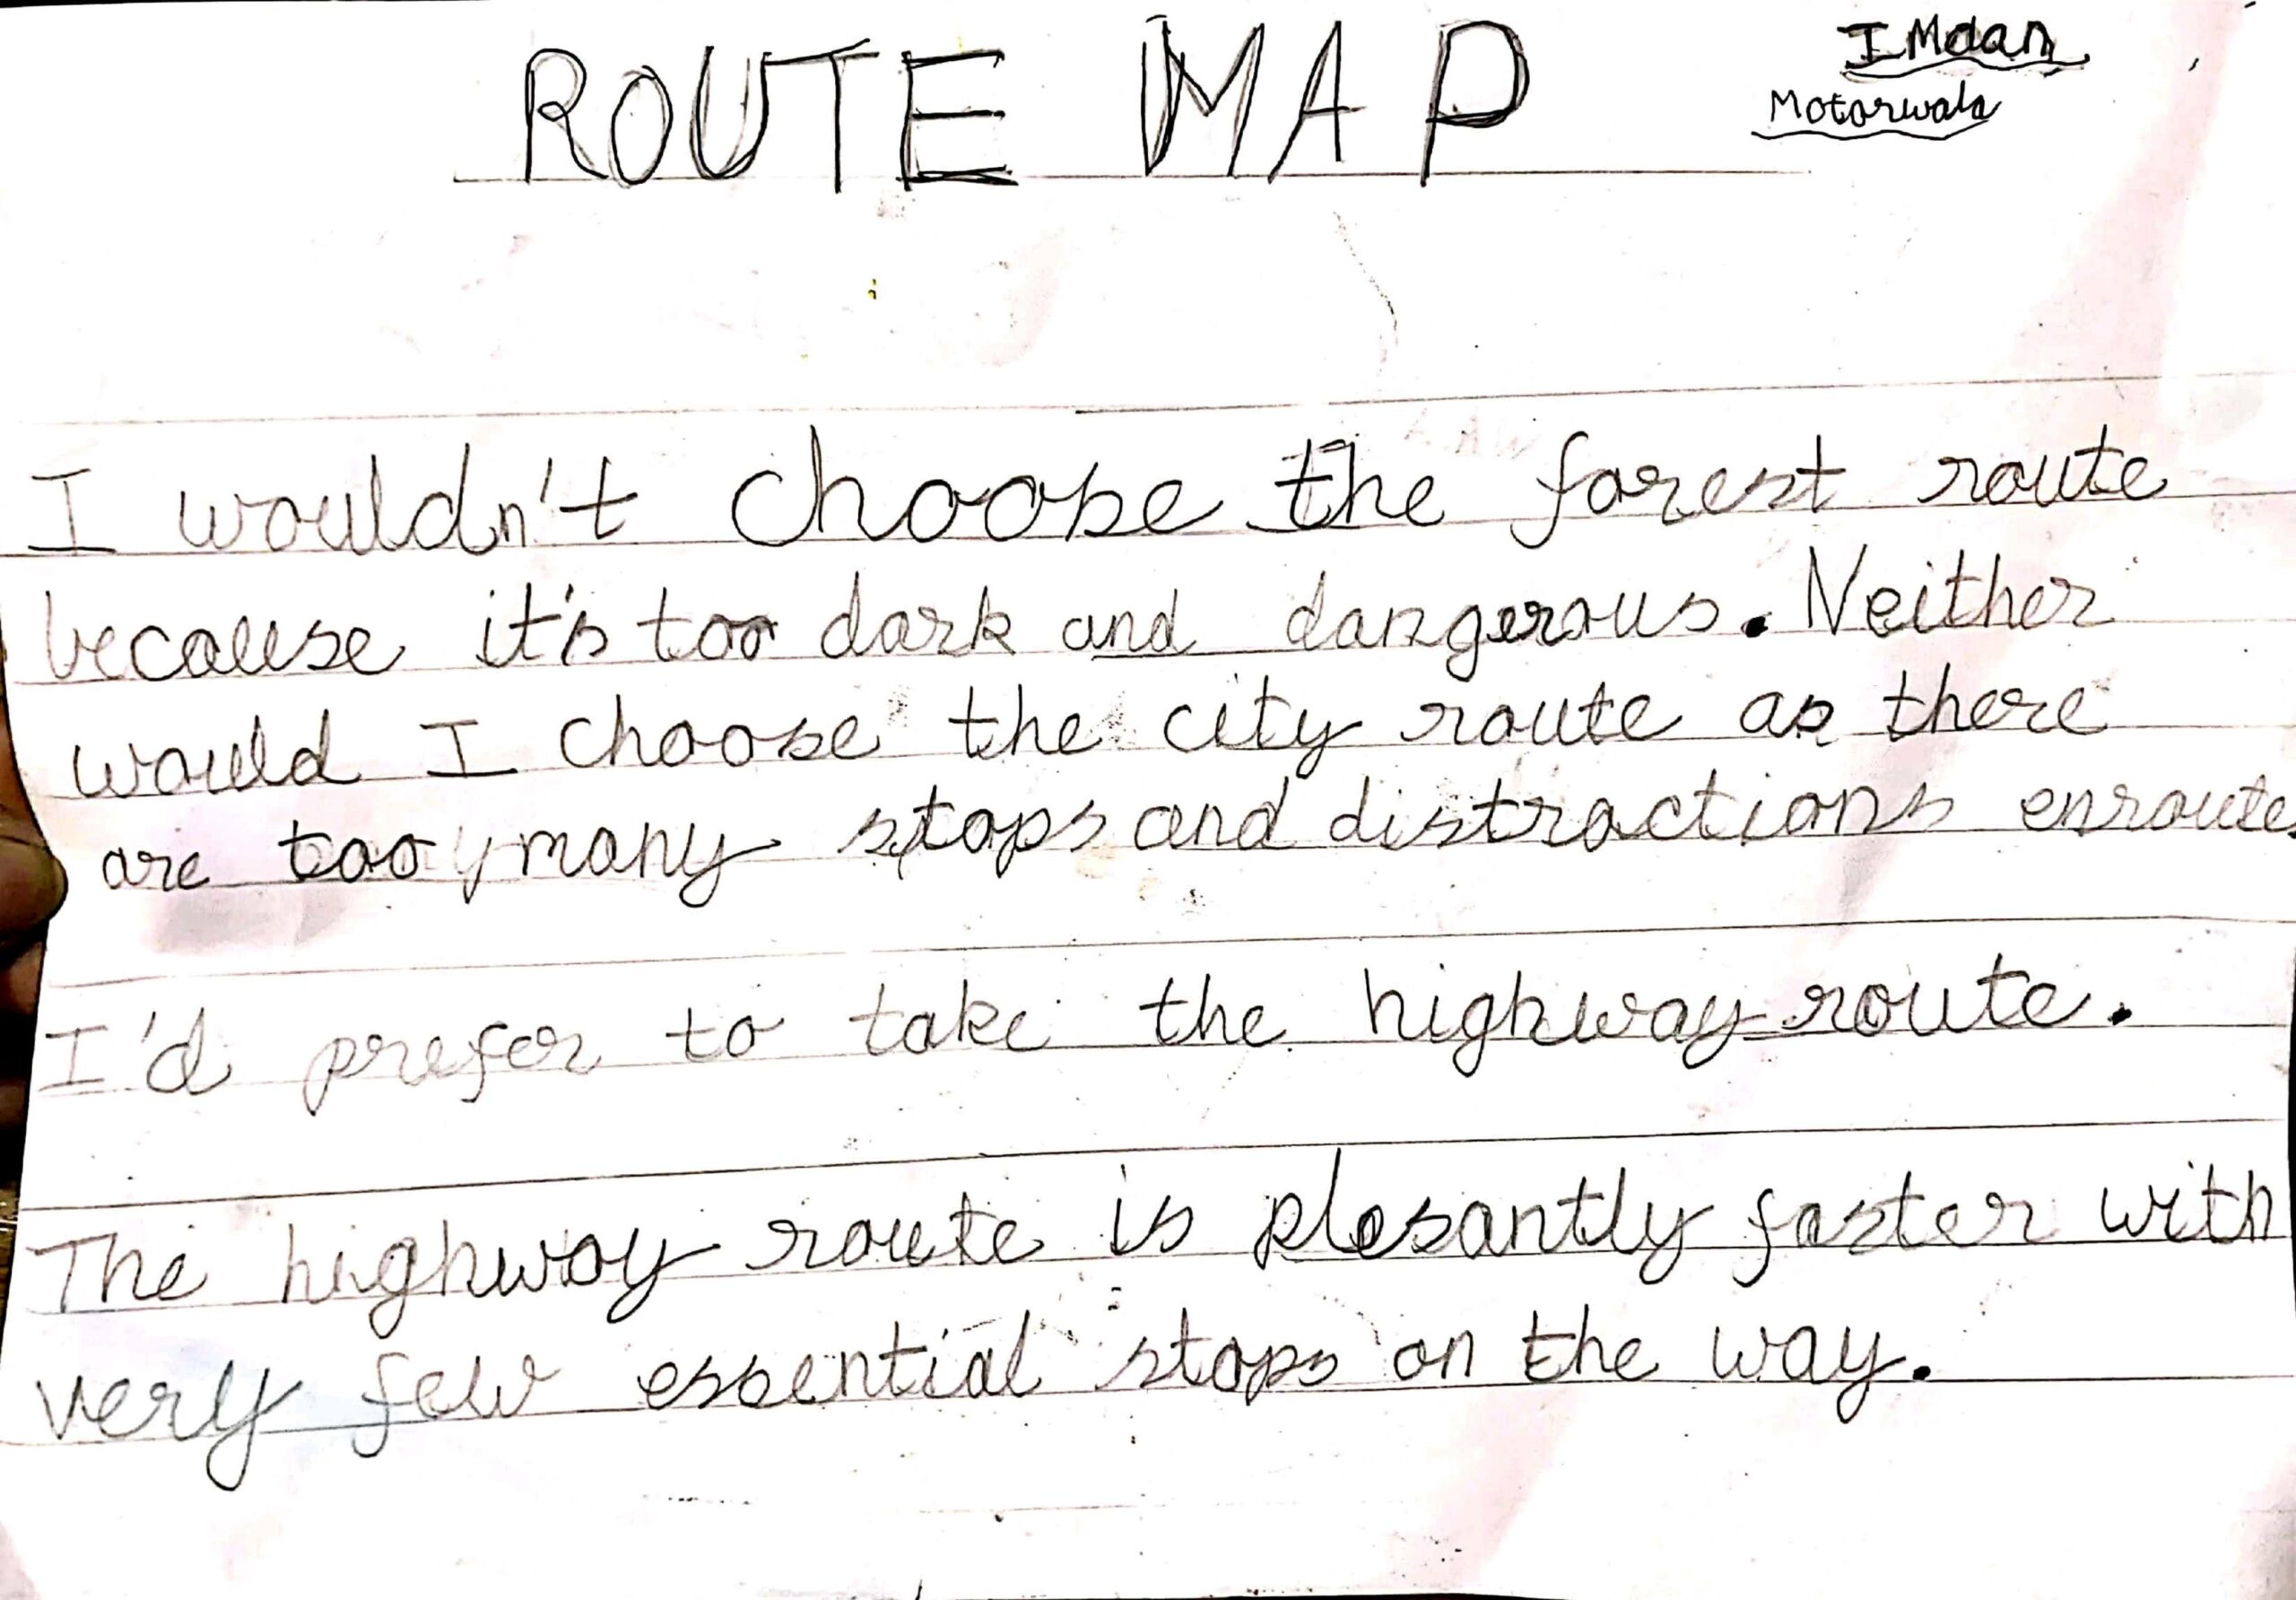 ROUTE MAP
IMdan
Motorwala
I wouldn't choose the forest route
because it's too dark and dangerous. Neither
would I choose the city route as there
are too many stops and distractions enroute
I'd prefer to take the highway route.
The highway route is plesantly faster with
very few essential stops on the way.